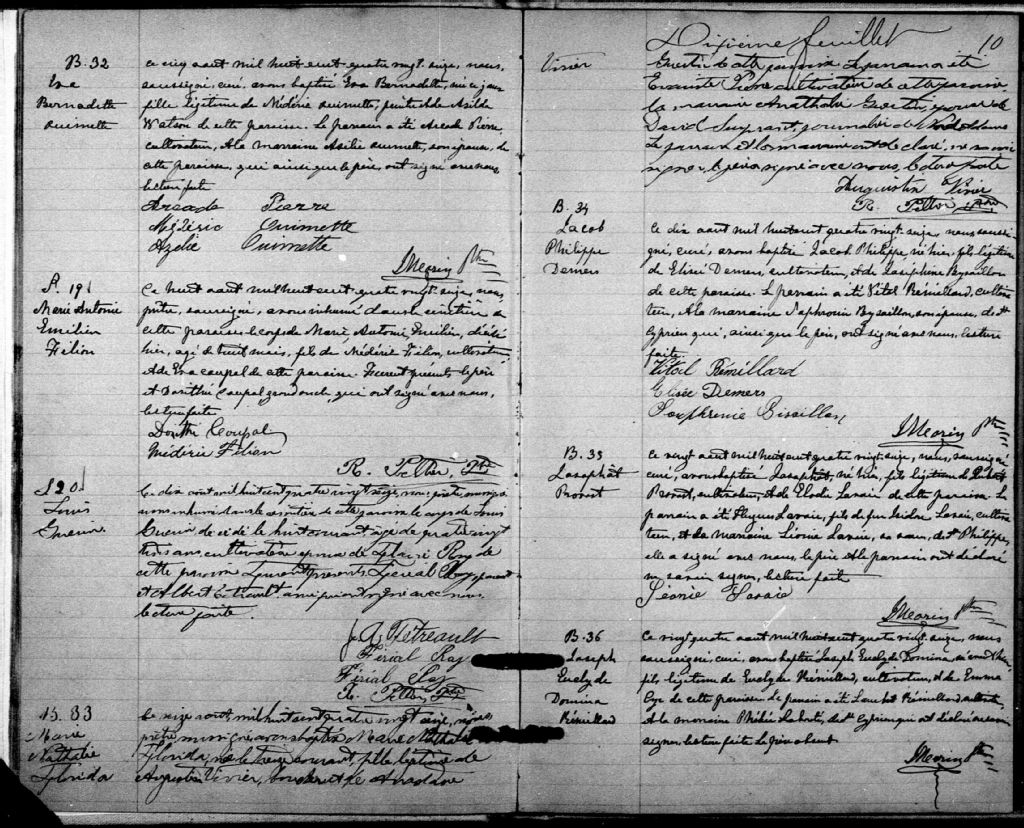 B. 32
Eva
Bernadette
Ouimette
Ce cinq aout mil huit cent quatre vingt seize, nous,
soussigné, curé, avons baptisé Eva Bernadette, née ce jour
fille légitime de Médéric Ouimette, peintre & de Asilda
Watson de cette paroisse. Le parrain a été Arcade Pierre,
cultivateur, & la marraine Asilie Ouimette, son épouse, de
cette paroisse, qui ainsi que le père, ont signé avec nous,
lecture faite
Arcade Pierre
Médéric Ouimette
Azélie Ouimette
J Morin Ptre
S. 19
Marie Antonio
Emilien
Filion
Ce huit aout mil huit cent quatre vingt seize, nous,
prêtre, soussigné, avons inhumé dans le cimetière de
cette paroisse le corps de Marie Antonio Emilien, décédé
hier, agé de huit mois, fils de Médéric Filion, cultivateur
& de Eva Coupal de cette paroisse. Furent présents le père
et Dorithé Coupal grand oncle, qui ont signé avec nous,
lecture faite
Dorithé Coupal
Médéric Filion
R. Pelltier, Ptre
S 20
Louis
Ce dix aout mil huit cent quatre vingt seize, nous prêtre
avons inhumé dans le cimetière de cette paroisse le corps de Louis
décédé le huit courant, agé de quatre vingt
trois ans, cultivateur époux de Flavie Roy de
cette paroisse Furent présents Férial Roy parent
& Albert Tétreault ami qui ont signé avec nous
lecture faite.
J. A. Tétreault
Férial Roy
Férial Roy
R. Pelltier Ptre
B. 33
Marie
Nathalie
Florida
Ce seize aout, mil huit cent quatre vingt seize, nous
prêtre soussigné avons baptisé Marie Nathalie
Florida, née le treize courant, fille légitime de
Augustin Vivier, & de
Dixième feuillet 10
Vivier
de cette paroisse Le parrain a été
Evariste Pierre cultivateur de cette paroisse
la marraine Anathalie épouse de
David Suprenant, journalier de
Le parrain et la marraine ont déclaré ne savoir
signer, le père a signé avec nous, lecture faite
Augustin Vivier
R. Pelltier Ptre
B. 34
Jacob
Philippe
Demers
Ce dix aout mil huit cent quatre vingt seize, nous soussi-
gné, curé, avons baptisé Jacob Philippe, né hier, fils légitime
de Elisée Demers, cultivateur, & de Joséphine Bysaillon
de cette paroisse. Le parrain a été Vital Rémillard, cultiva-
teur, & la marraine Saphronie Bysaillon, son épouse, de St
Cyprien qui, ainsi que le père, ont signé avec nous, lecture
faite.
Vital Rémillard
Elisée Demers
Sophronie Bisaillon
J Morin Ptre
B. 35
Josaphat
Provost
Ce vingt aout mil huit cent quatre vingt seize, nous, soussigné
curé, avons baptisé Josaphat, né hier, fils légitime de
Provost, cultivateur, & de Elodie Lavoie de cette paroisse. Le
parrain a été Lavoie, fils de feu Isidore Lavoie, cultiva-
teur, & la marraine Léonie Lavoie, sa sœur, de St Philippe,
elle a signé avec nous, le père & le parrain ont déclaré
ne savoir signer, lecture faite
Léonie Lavoie
J Morin Ptre
B. 36
Joseph
Euclyde
Domina
Rémillard
Ce vingt quatre aout mil huit cent quatre vingt seize, nous
soussigné, curé, avons baptisé Joseph Euclyde Domina, né
fils légitime de Euclyde Rémillard, cultivateur, & de Emma
de cette paroisse. Le parrain a été Rémillard,
& la marraine de St Cyprien qui ont déclaré ne savoir
signer, lecture faite le père absent
J Morin Ptre